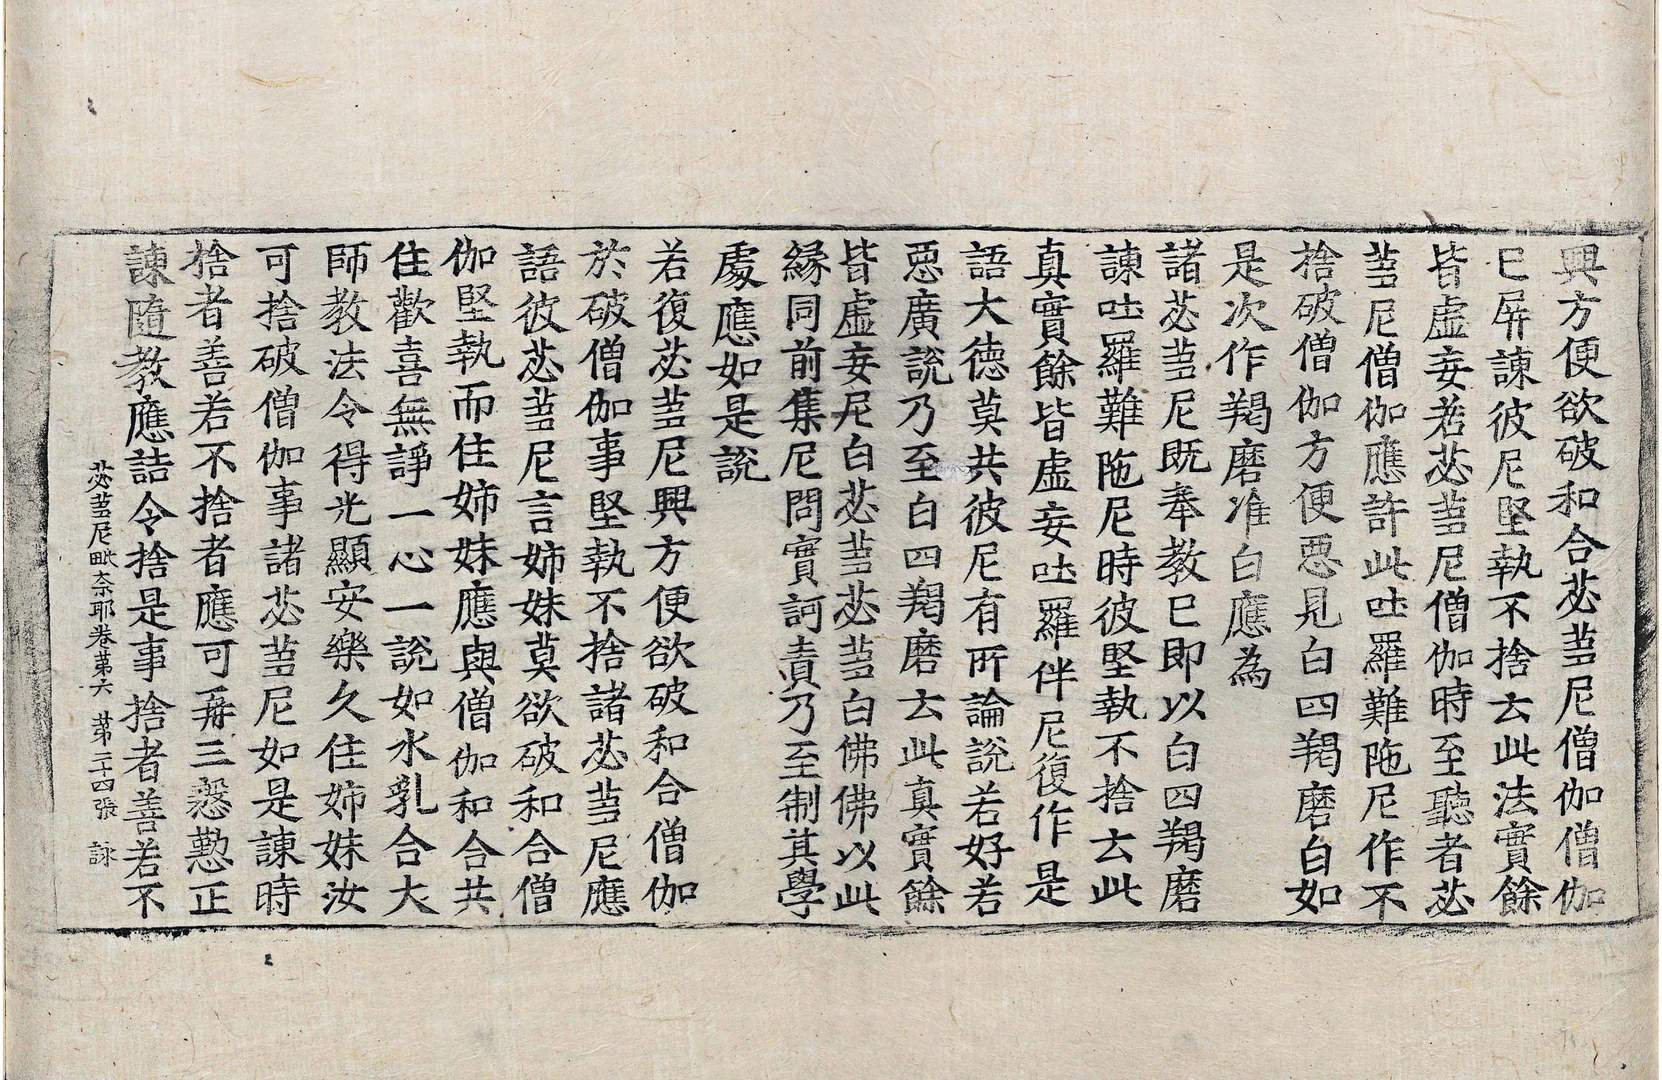 興方便欲破和合苾芻尼僧伽僧伽
已屏諫彼尼堅執不捨云此法實餘
皆虛妄若苾芻尼僧伽時至聽者苾
芻尼僧伽應許此吐羅難陁尼作不
捨破僧伽方便惡見白四羯磨白如
是次作羯磨准白應為
諸苾芻尼旣奉教已即以白四羯磨
諫吐羅難陁尼時彼堅執不捨云此
真實餘皆虛妄吐羅伴尼復作是
語大德莫共彼尼有所論說若好若
惡廣說乃至白四羯磨云此真實餘
皆虛妄尼白苾芻苾芻白佛佛以此
緣同前集尼問實訶責乃至制其學
處應如是說
若復苾芻尼興方便欲破和合僧伽
於破僧伽事堅執不捨諸苾芻尼應
語彼苾芻尼言姉妹莫欲破和合僧
伽堅執而住姉妹應與僧伽和合共
住歡喜無諍一心一說如水乳合大
師教法令得光顯安樂久住姉妹汝
可捨破僧伽事諸苾芻尼如是諫時
捨者善若不捨者應可再三慇懃正
諫隨教應詰令捨是事捨者善若不
苾芻尼毗奈耶卷第六 第二十四張 詠